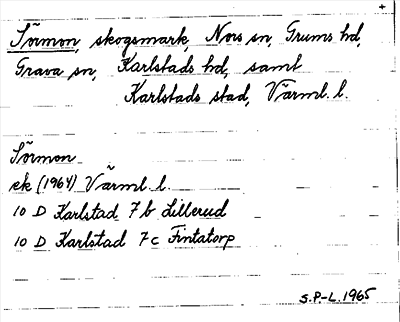 Sörmon, skogsmark, Nors sn, Grums hd,
Grava sn, Karlstads hd, samt
Karlstads stad, Värml. l.
Sörmon
ek (1964) Värml. l.
10 D Karlstad 7 b Lillerud
10 D Karlstad 7 c Fintatorp
S.P-L. 1965